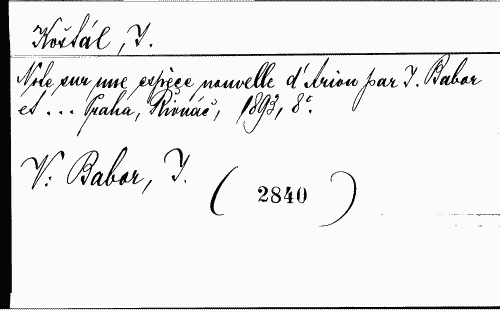 Košťál, J.
Note sur une espèce nouvelle d'Arion par J. Babor
et ... Praha, Řivnáč, 1893, 8°.
V: Babor, J.
(2840)